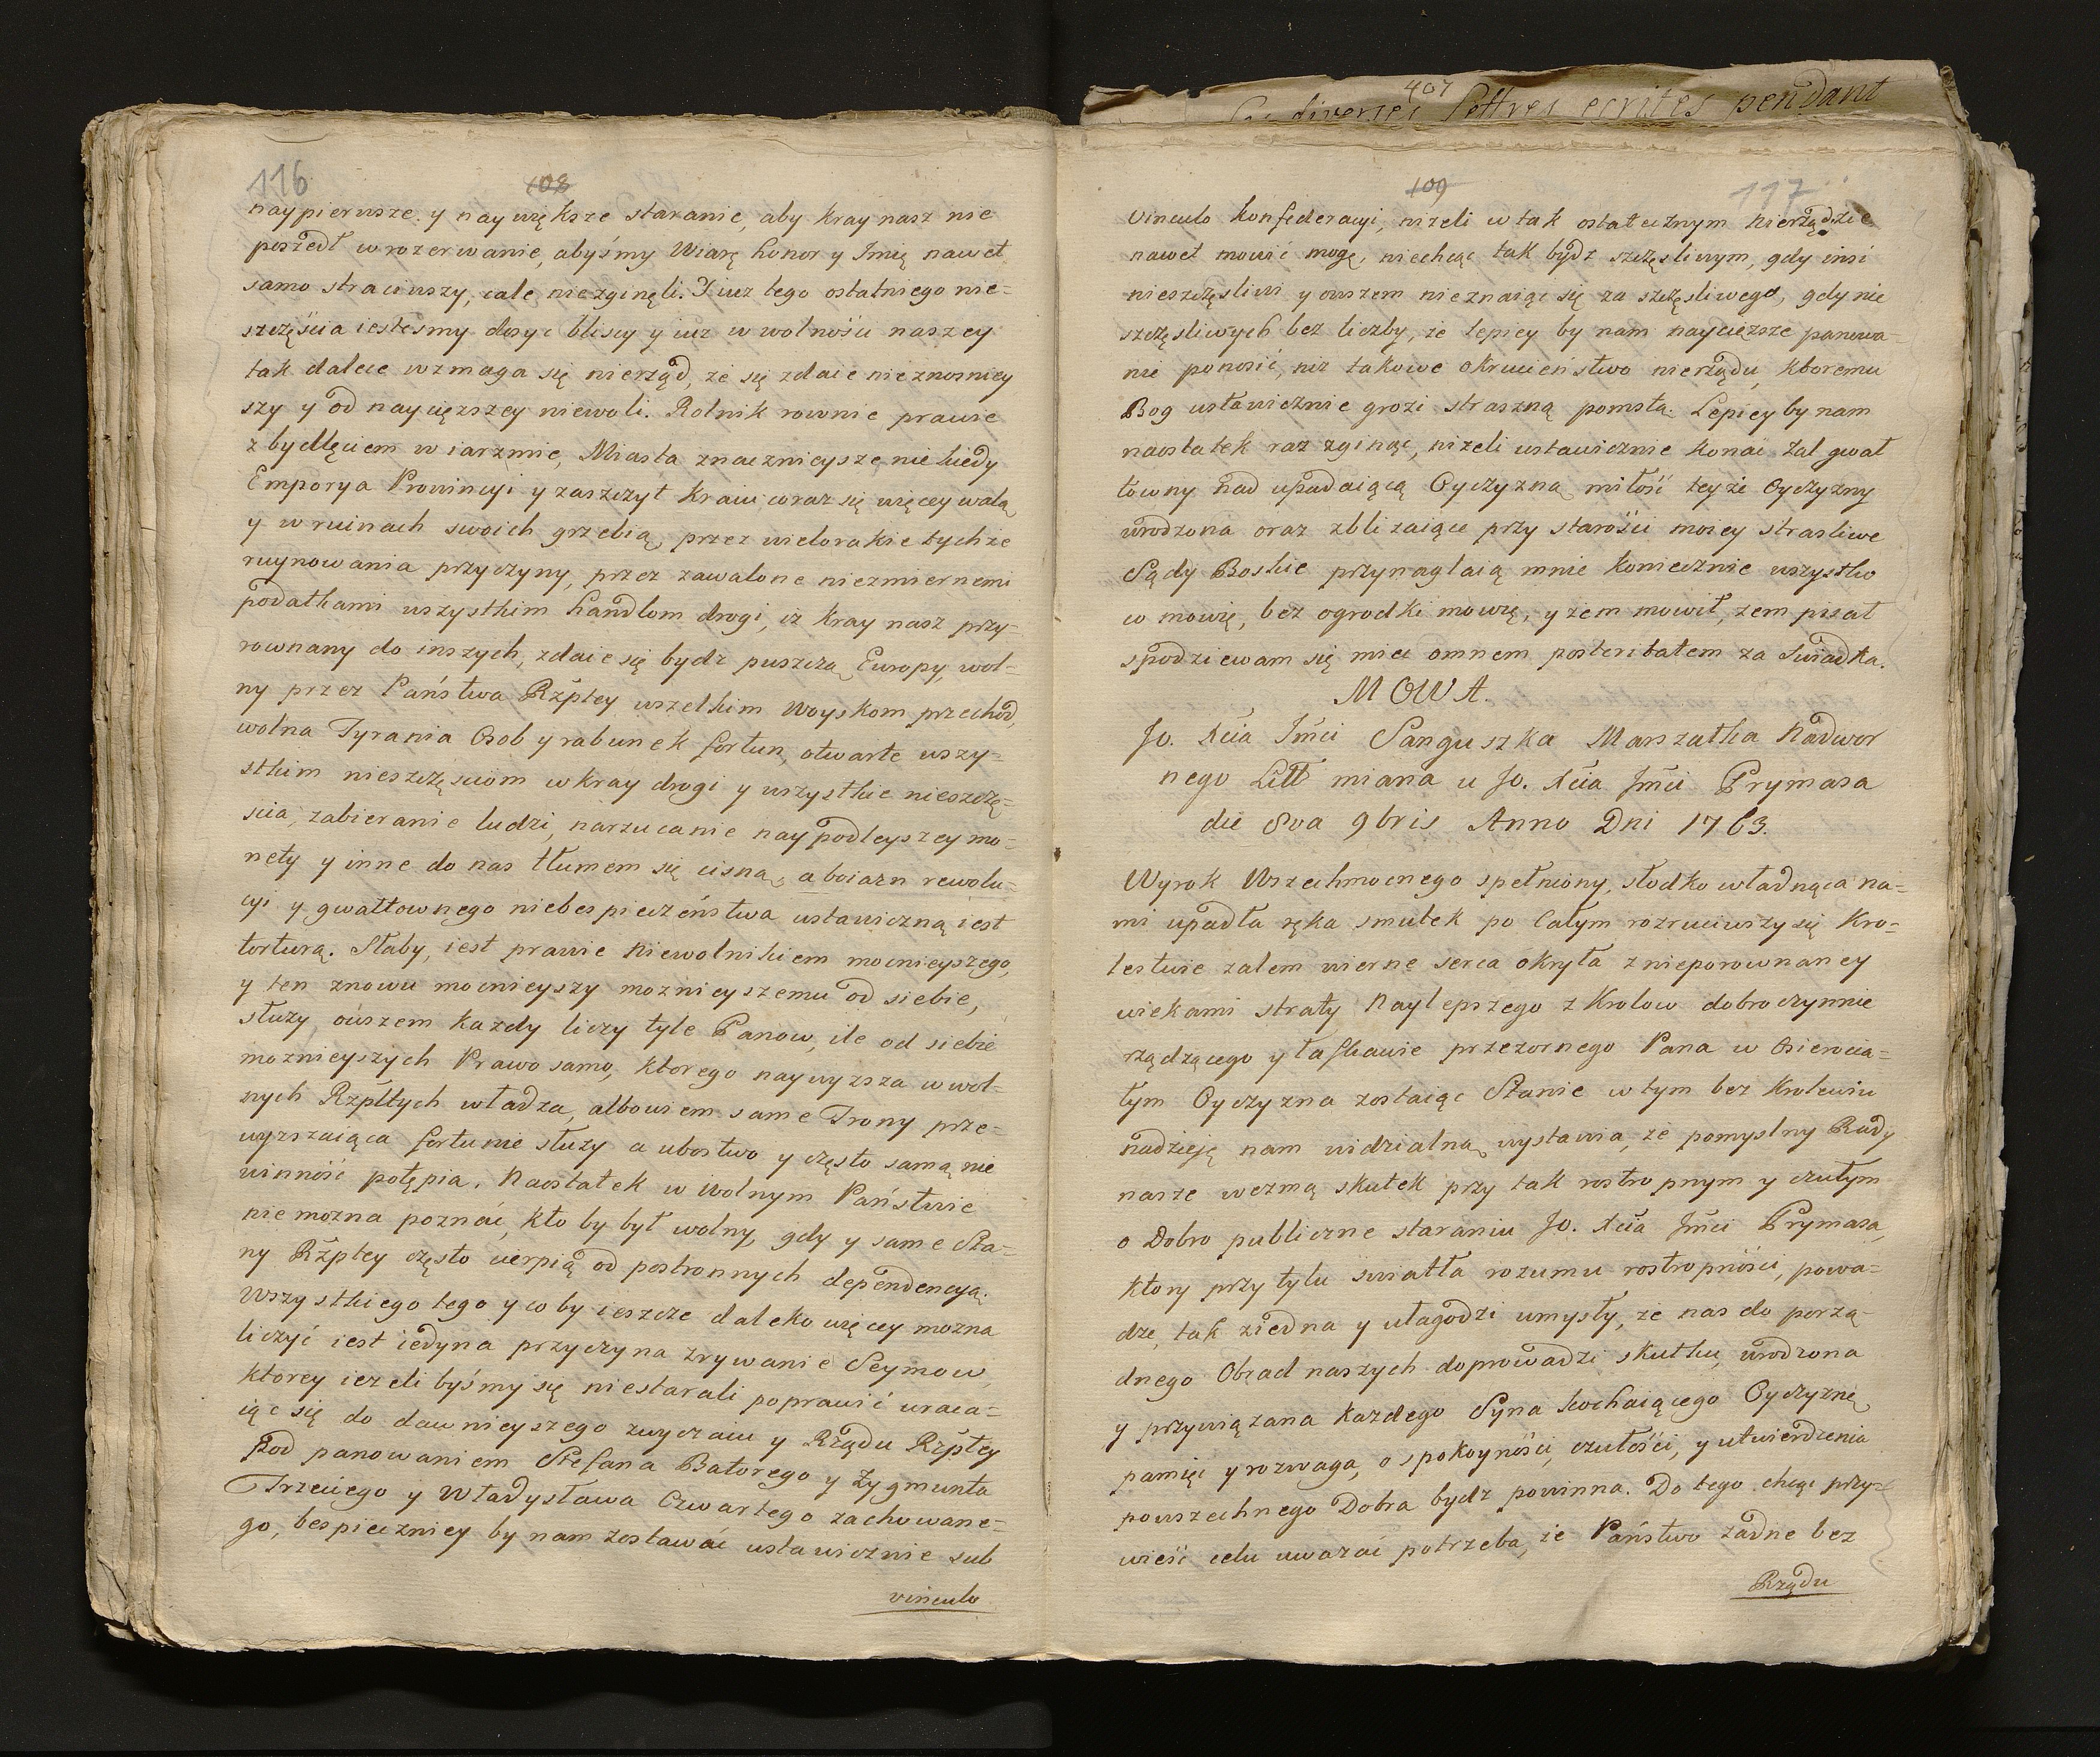 116
108
naypierwsze y naywiększe staranie, aby kray nasz nie
poszedł w rozerwanie, abyśmy Wiarę honor y Imię nawet
samo straciwszy, cale niezginęli. I iuz tego ostatniego nie=
szczęścia iesteśmy dosyc bliscy y iuz w wolnośći naszey
tak dalece wzmaga się nierząd, że się zdaie nieznosniey
szy y od naycięzszey niewoli. Rolnik rownie prawie
z bydlęciem w iarzmie, Miasta znacznieysze niekiedy
Emporya Prowincyi y zaszczyt kraiu coraz się więcey walą
y w ruinach swoich grzebią, przez wielorakie tychże
ruynowania przyczyny, przez zawalone niezmiernemi
podatkami wszystkim handlom drogi, iż kray nasz przy=
rownany do inszych, zdaie się bydz puszczą Europy, wol=
ny przez Państwa Rzptey wszelkim woyskom przechod,
wolna Tyrania Osob y rabunek fortun, otwarte wszy=
stkim nieszczęsciom w kray drogi y wszystkie nieszczę=
scia, zabieranie ludzi, narzucanie naypodleyszey mo=
nety y inne do nas tłumem się cisną, a boiazn rewolu=
cyi y gwałtownego niebespieczeństwa ustawiczną iest
torturą. Słaby, iest prawie Niewolnikiem mocnieyszego,
y ten znowu mocnieyszy moznieyszemu od siebie,
służy, owszem kazdy liczy tyle Panow, ile od siebie
moznieyszych Prawo samo, ktorego naywyzsza w wol=
nych Rzpltych władza, albowiem same Trony prze=
wyzszaiąca fortunie służy a ubostwo y często samą nie
winność potępia. Naostatek w Wolnym Państwie
nie mozna poznać, kto by był wolny, gdy y same Sta=
ny Rzptey często cierpią od postronnych dependencyą.
Wszystkiego tego y co by ieszcze daleko więcey mozna
liczyć iest iedyna przyczyna zrywanie Seymow
ktorey iezeli byśmy się niestarali poprawić wraca=
iąc się do dawnieyszego zwyczaiu y Rządu Rzptey
pod panowaniem Stefana Batorego y Zygmunta
Trzeciego y Władysława Czwartego zachowane=
go, bespieczniey by nam zostawać ustawicznie sub
vinculo
407
diverses Lettres ecrites pendant
109
117
vinculo konfederacyi, nizeli w tak ostatecznym Nierządzie
nawet mowić mogę, niechcąc tak bydz szczęsliwym, gdy insi
nieszczęsliwi y owszem nieznaiąc się za szczęsliwego, gdy nie
szczęsliwych bez liczby, ze lepiey by nam naycięzsze panowa=
nie ponosić, niz takowe okrucieństwo nierządu, ktoremu
Bog ustawicznie grozi straszną pomstą. Lepiey by nam
naostatek raz zginąc, nizeli ustawicznie konać żal gwał
towny nad upadaiącą Oyczyzną, miłość teyże Oyczyzny
wrodzona oraz zblizaiące przy starości moiey strasliwe
Sądy Boskie przynaglaią mnie koniecznie wszystko
co mowię, bez ogrodki mowię, y żem mowił, żem pisał
spodziewam się mieć omnem posteritatem za Swiadka.
MOWA.
Jo. Xcia Jmci Sanguszka Marszałka Nadwor
nego Litt miana u Jo. Xcia Jmci Prymasa
die 8va 9bris Anno Dni 1763.
Wyrok Wszechmocnego spełniony, słodko władnąca na=
mi upadła ręka smutek po całym rozruciwszy się Kro=
lestwie żalem wierne serca okryła z nieporownaney
wiekami straty Naylepszego z Krolow dobroczynnie
rządzącego y łaskawie przezornego Pana w Osierocia=
łym Oyczyzna zostaiąc Stanie w tym bez krolewiu
nadzieję nam widzialną wystawia, że pomyslny Rady
nasze wezmą skutek przy tak rostropnym y czułym
o Dobro publiczne staraniu Jo. Xcia Jmci Prymasa,
ktory przy tylu swiatła rozumu rostropności, powa=
dze, tak ziedna y ułagodzi umysły, że nas do porzą=
dnego Obrad naszych doprowadzi skutku, wrodzona
y przywiązana kazdego Syna kochaiącego Oyczyznę
pamięć y rozwaga, o spokoyności, czułości, y utwierdzenia
powszechnego Dobra bydz powinna. Do tego chcąc przy=
wieść celu uwazać potrzeba, że Państwo żadne bez
Rządu